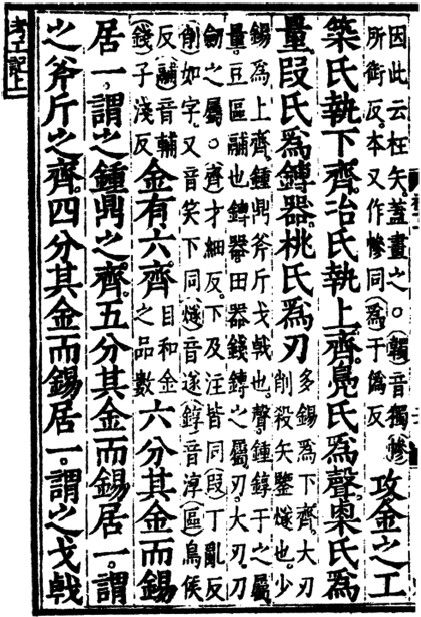 因此云枉矢蓋畫之○韣音獨縿
所銜反本又作幓同爲于僞反
攻金之工
築氏執下齊冶氏執上齊鳧氏爲聲㮚氏爲
量段氏爲鎛器桃氏爲刃
多錫爲下齊大刃
削殺矢鑒燧也少
錫爲上齊鍾鼎斧斤戈戟也聲鍾錞于之屬
量豆區鬴也鎛器田器錢鎛之屬刃大刃刀
劒之屬○齊才細反下及注皆同段丁亂反
削如字又音笑下同燧音遂錞音淳區烏侯
反鬴音輔
錢子淺反
金有六齊
目和金
之品數
六分其金而錫
居一謂之鍾鼎之齊五分其金而錫居一謂
之斧斤之齊四分其金而錫居一謂之戈戟
考工記上